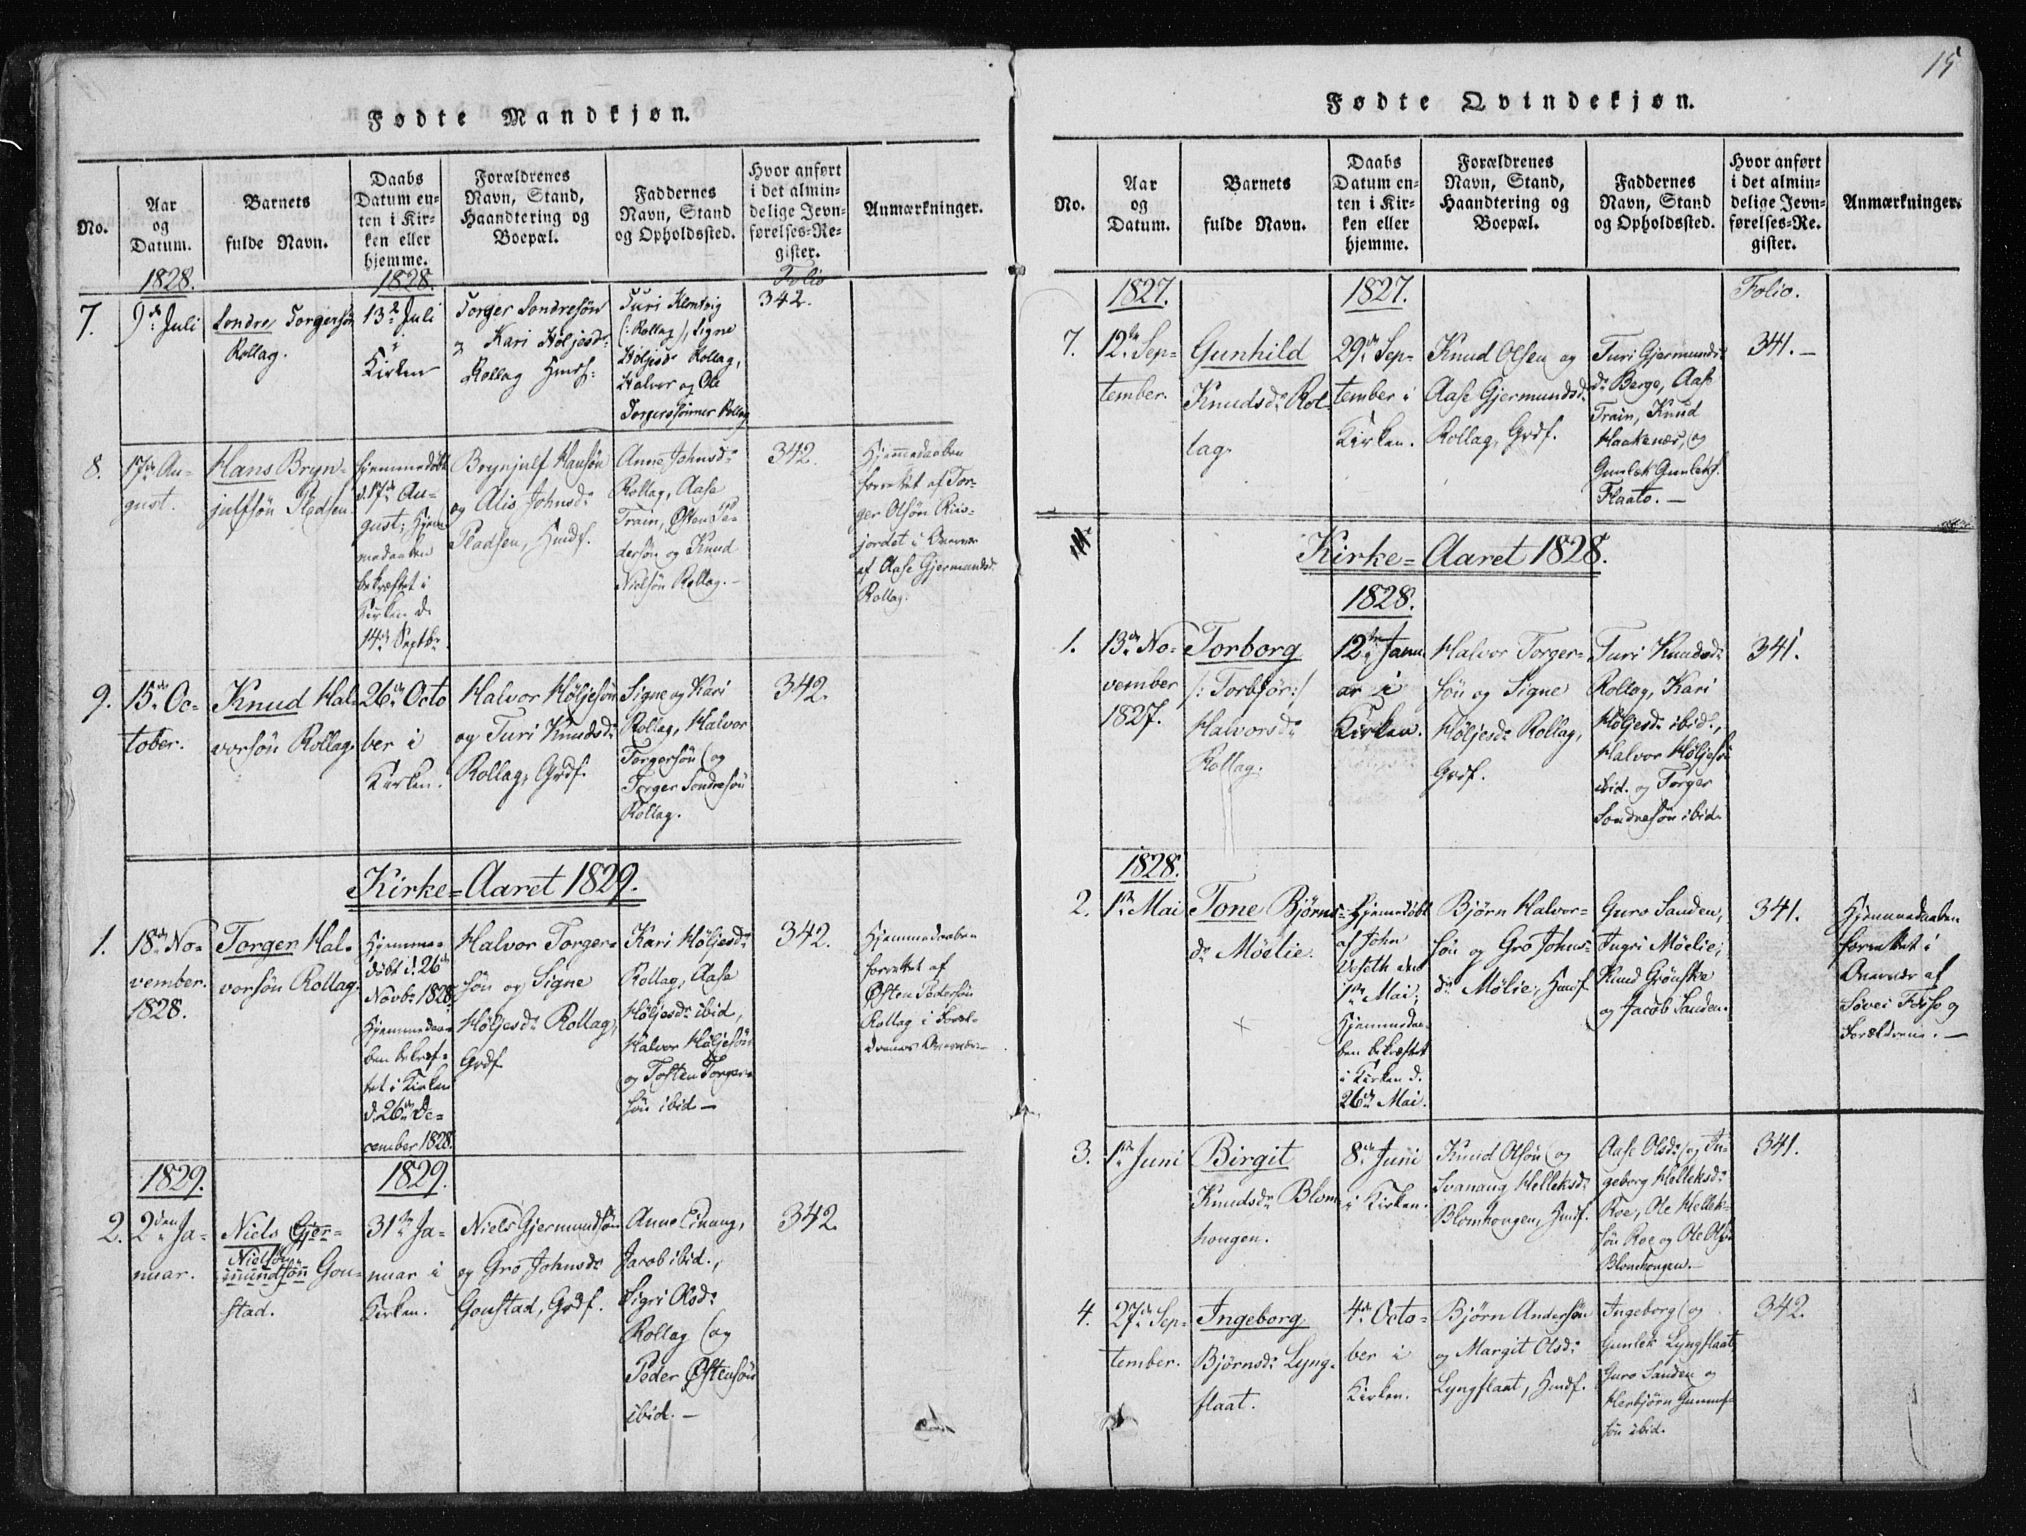 Fødte Mandkjøn.
No.
Aar
og
Datum.
Barnets
fulde Navn.
Daabs
Datum en-
ten i Kir-
ken eller
hjemme.
Forældrenes
Navn, Stand,
Haandtering og
Boepæl.
Faddernes
Navn, Stand
og Opholdssted.
Hvor anført
i det almin-
delige Jevn-
førelses-Re-
gister.
Anmærkninger.
1828.
1828.
Folio
7.
9de Juli
Sondre Torgersøn
Rollag.
13de Juli
i
Kirken
Torger Sondresøn
og Kari Höljesdr
Rollag
Turi
(: Rollag), Signe
Höljesdr Rollag,
Halvor og Ole
Torgersönner Rollag
342.
8.
17de Au-
gust.
Hans Bryn-
julfsön Pladsen.
Hjemmedöbt
d. 17de Au-
gust; Hjem-
medaaben
bekræftet i
Kirken d.
14de Septbr.
Brynjulf Hansön
og Alis Johnsdr
Pladsen, Hmdf.
Anne Johnsdr
Rollag, Aase
Train, Østen Pe-
dersön og Knud
Nielsön Rollag. —
342.
Hjemmedaaben
forrettet af Tor-
ger Olsön Riis-
jordet i Overvær
af Aase Gjermundsdr
Rollag.
9.
15de Oc-
tober.
Knud Hal-
vorsön Rollag.
26de Octo
ber i
Kirken.
Halvor Höljesön
og Turi Knudsdr
Rollag, Grdf.
Signe og Kari
Rollag, Halvor
Torgersön og
Torger Sondresön
Rollag.
342.
Kirke=Aaret 1829.
1.
18de No-
vember.
1828.
Torger Hal-
vorsön Rollag.
Hjemme-
döbt d. 26de
Novbr 1828.
Hjemmedaa-
ben bekræf-
tet i Kirken
d. 26de De-
cember 1828.
Halvor Torger-
sön og Signe
Höljesdr Rollag,
Grdf
Kari Höljesdr
Rollag, Aase
Höljesdr ibid,
Halvor Höljesön
og Tosten Torger-
sön ibid —
342.
Hjemmedaaben
forrettet af
Østen Pedersön
Rollag i Foræl-
drenes Overvær. —
1829.
1829.
2.
2den Ja-
nuar.
Niels Gjer-
Nielsön
mundsön Gou-
stad.
31te Ja-
nuar i
Kirken.
Niels Gjermundsön
og Gro Johnsdr
Goustad, Grdf.
Anne Einang,
Jacob ibid.,
Sigri Olsdr
Rollag og
Peder Østensön
ibid. —
342.
15
Fødte Qvindekjøn.
No.
Aar
og
Datum.
Barnets
fulde Navn.
Daabs
Datum en-
ten i Kir-
ken eller
hjemme.
Forældrenes
Navn, Stand,
Haandtering og
Boepæl.
Faddernes
Navn, Stand
og Opholdssted.
Hvor anført
i det almin-
delige Jevn-
førelses-Re-
gister.
Anmærkninger.
1827.
1827.
Folio.
7.
12te Sep-
tember.
Gunhild
Knudsdr Rol-
lag.
29de Sep-
tember i
Kirken.
Knud Olsen og
Aase Gjermundsdr
Rollag, Grdf.
Turi Gjermunds-
dr Berge, Aase
Train, Knud
Haakenæs, og
Gunlek Gunleks.
Flaato. —
341. —
Kirke=Aaret 1828.
1828.
1.
13de No-
vember
1827.
Torborg
/: Torbjør :/
Halvorsdr
Rollag.
12te Janu
ar i
Kirken.
Halvor Torger-
sön og Signe
Höljesdr Rollag,
Grdf.
Turi Knudsdr
Rollag, Kari
Höljesdr ibid.,
Halvor Höljesön
ibid. og Torger
Sondresön ibid.
341.
1828.
2.
1ste Mai
Tone Bjørns-
dr Möelie.
Hjemmedöbt
af John
Veseth den
1ste Mai;
Hjemmedaa-
ben bekræftet
i Kirken d.
26de Mai.
Björn Halvor-
sön og Gro Johns-
dr Mölie, Hmdf
Guro Sanden,
Ingri Möelie,
Knud Grönske
og Jacob Sanden.
341.
Hjemmedaaben
forrettet i
Overvær af
Sövei og
Forældrene. —
3.
1ste Juni
Birgit
Knudsdr Blom-
hougen.
8de Juni
i Kirken.
Knud Olsön og
Svanaug Helleksdr
Blomhougen, Hmdf.
Aase Olsdr og In-
geborg Helleksdr
Roe, Ole Hellek-
sön Roe og Ole Olsön
Blomhougen. —
341.
4.
27de Sep-
tember.
Ingeborg
Björnsdr Lyng-
flaat.
4de Octo-
ber i
Kirken.
Björn Andersön
og Margit Olsdr
Lyngflaat, Hmdf.
Ingeborg og
Gunlek Lyngflaat,
Guro Sanden og
Herbjörn Gunnuf-
sön ibid.
342.